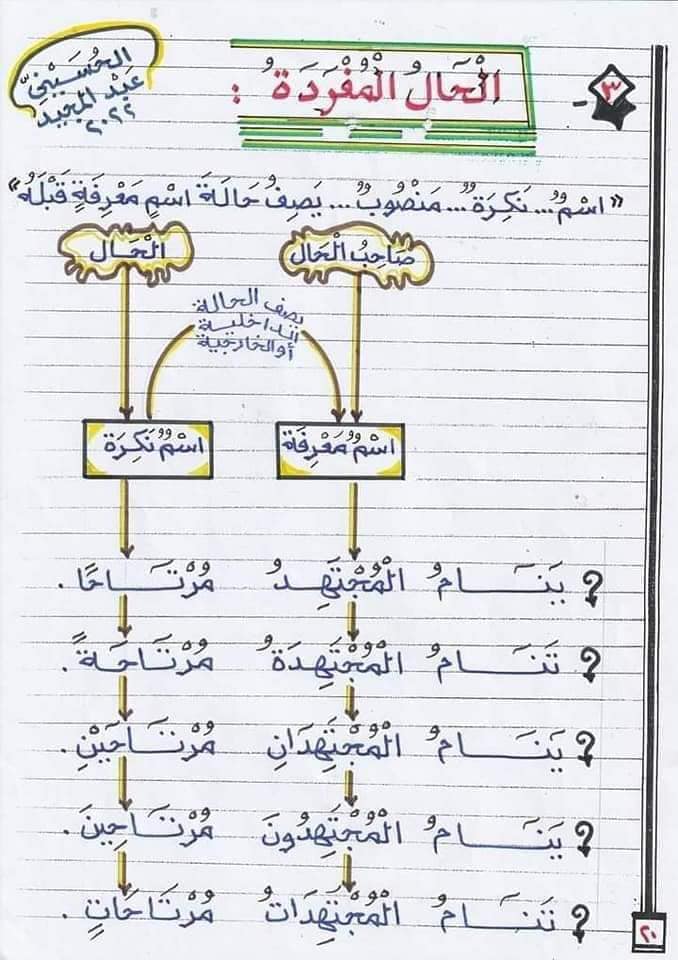 الْحُسَيْنِيّ
عَبْدُ الْمَجِيدِ
٢٠٢٢
٣
الْحَالُ الْمُفْرَدَةُ :
« اسْمٌ ... نَكِرَةٌ ... مَنْصُوبٌ ... يَصِفُ حَالَةَ اسْمٍ مَعْرِفَةٍ قَبْلَهُ »
صَاحِبُ الْحَالِ الْحَالُ
يصف الحالة
الداخلية
أو الخارجية
اسْمٌ مَعْرِفَةٌ اسْمٌ نَكِرَةٌ
؟ يَنَامُ الْمُجْتَهِدُ مُرْتَاحًا .
؟ تَنَامُ الْمُجْتَهِدَةُ مُرْتَاحَةً .
؟ يَنَامُ الْمُجْتَهِدَانِ مُرْتَاحَيْنِ .
؟ يَنَامُ الْمُجْتَهِدُونَ مُرْتَاحِينَ .
؟ تَنَامُ الْمُجْتَهِدَاتُ مُرْتَاحَاتٍ .
٢٠